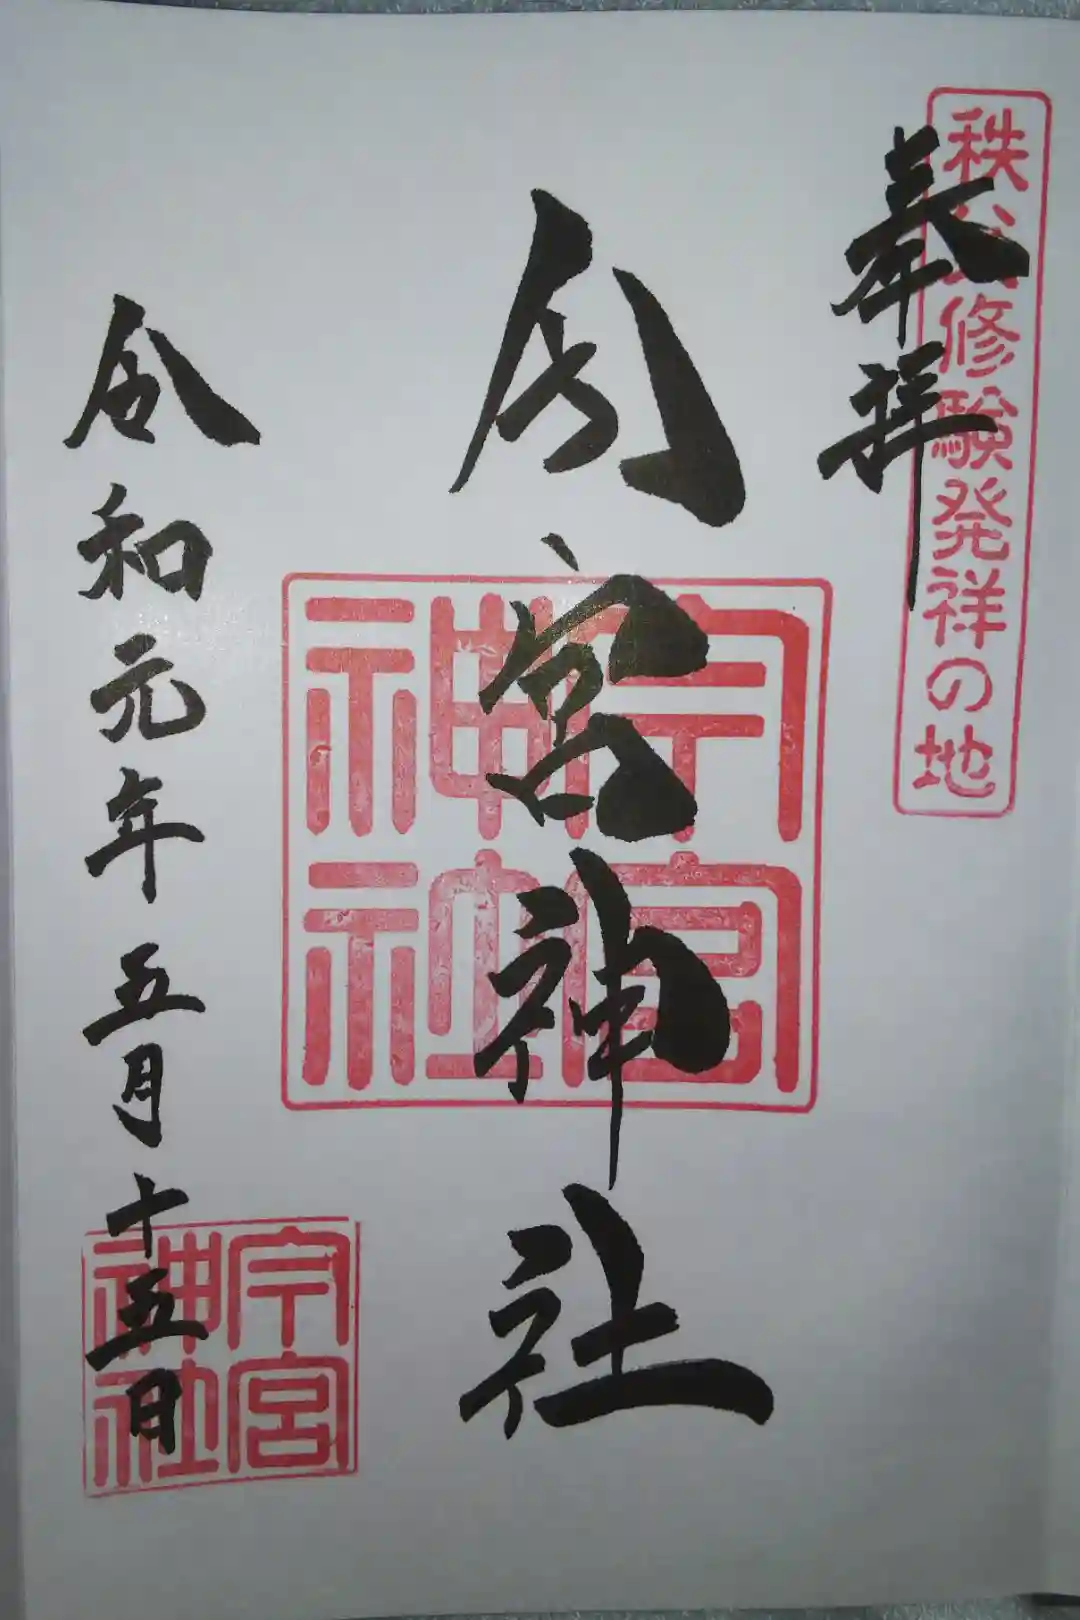 秩父修験発祥の地
奉拝
今宮神社
今宮
神社
令和元年五月十五日
今宮
神社